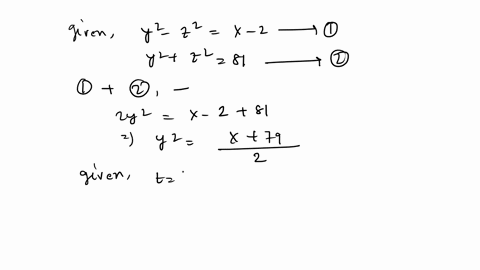 given, y² - z² = x - 2 ⟶ ①
y² + z² = 81 ⟶ ②
① + ②, —
2y² = x - 2 + 81
⇒) y² = (x + 79)/2
given, t=